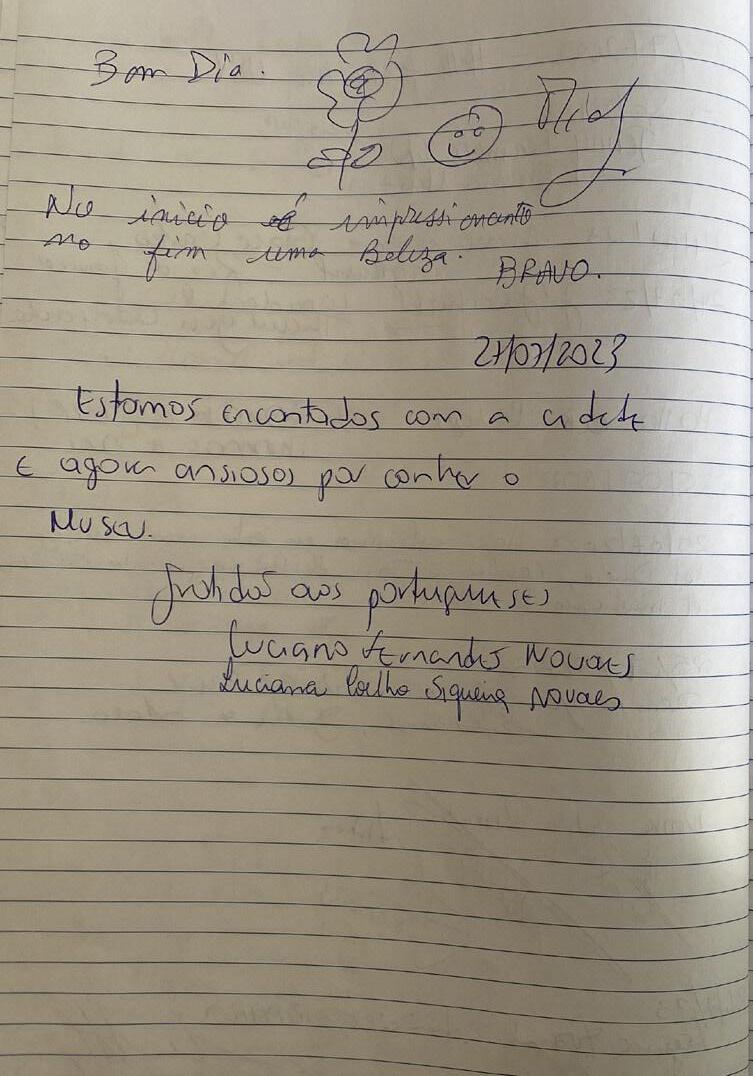 Bom Dia.
No inicio é impressionante
no fim uma Beleza.
BRAVO.
27/07/2023
Estamos encantados com a cidade
E agora ansiosos por conher o
Museu.
aos portugueses
Luciano Fernandes Novaes
Luciana Coelho Siqueira Novaes